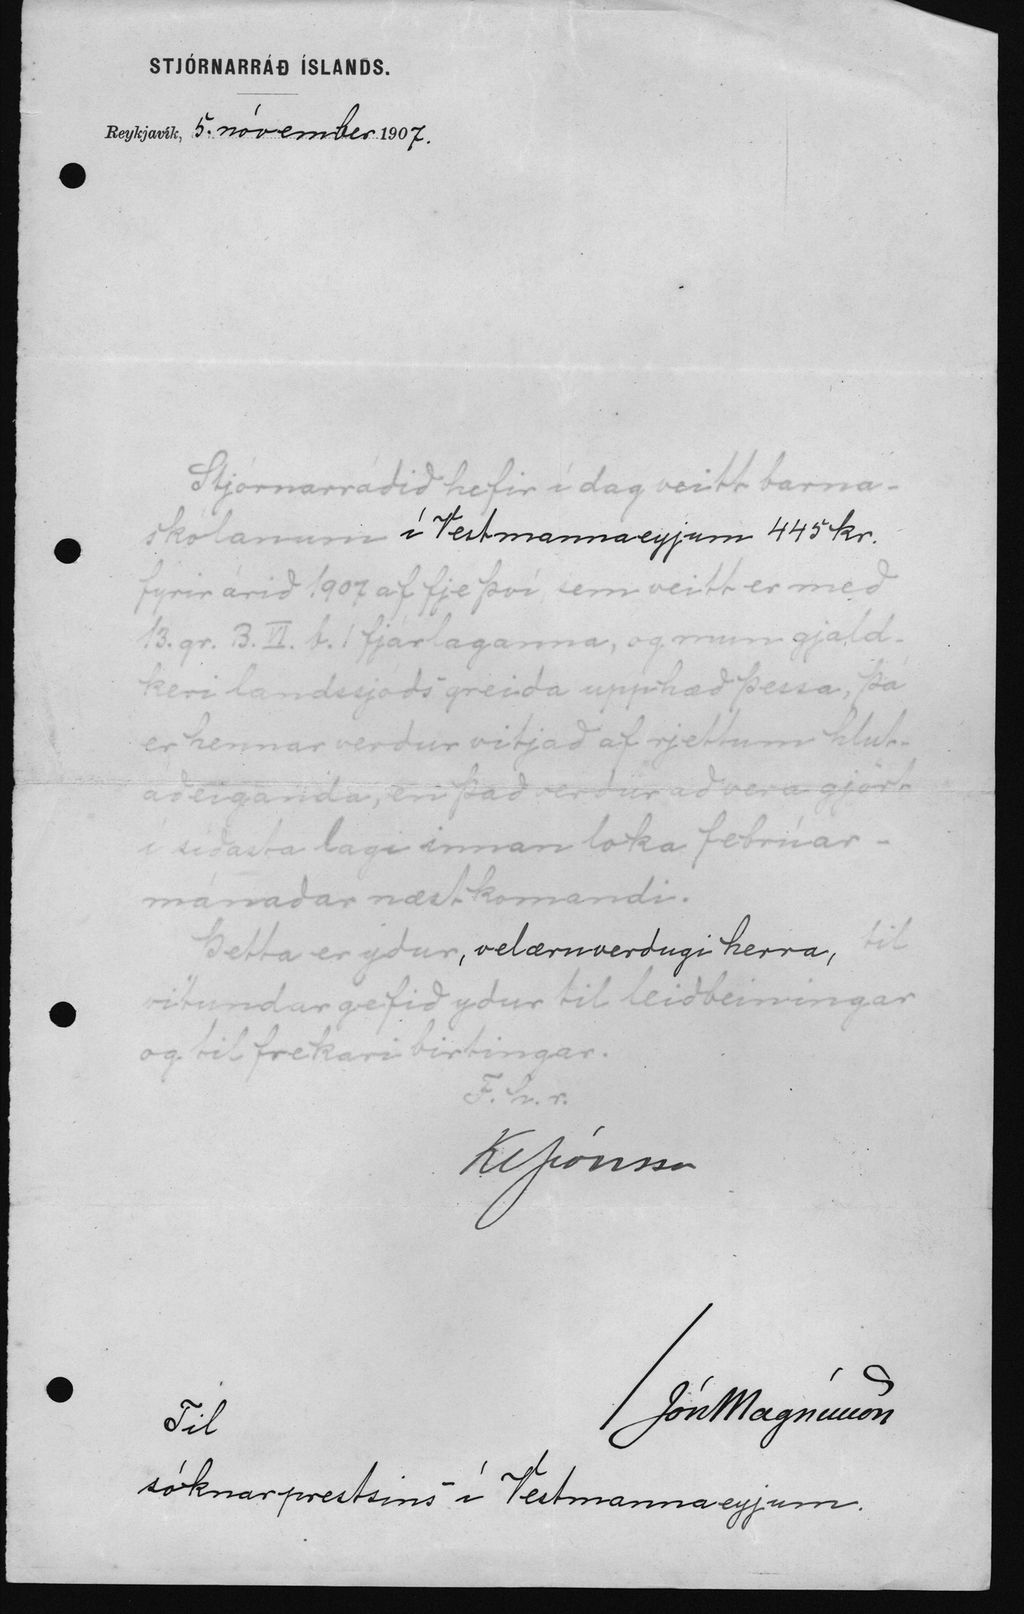 STJÓRNARRÁÐ ÍSLANDS.
Reykjavík, 5. nóvember 1907.
Stjórnarráðið hefir í dag veitt barna-
skólanum í Vestmannaeyjum 445 kr.
fyrir árið 1907 af fje því sem veitt er með
13. gr. B. VI. b. 1 fjárlaganna, og mun gjald-
keri landssjóðs greiða upphæð þessa, þá
er hennar verður vitjað af rjettum hlut-
aðeiganda, en það verður að vera gjört
í síðasta lagi innan loka febrúar-
mánaðar næstkomandi.
Þetta er yður, velæruverðugi herra, til
vitundar gefið yður til leiðbeiningar
og til frekari birtingar.
F. h. r.
Kl Jónsson
Jón Magnússon
Til
sóknarprestsins í Vestmannaeyjum.